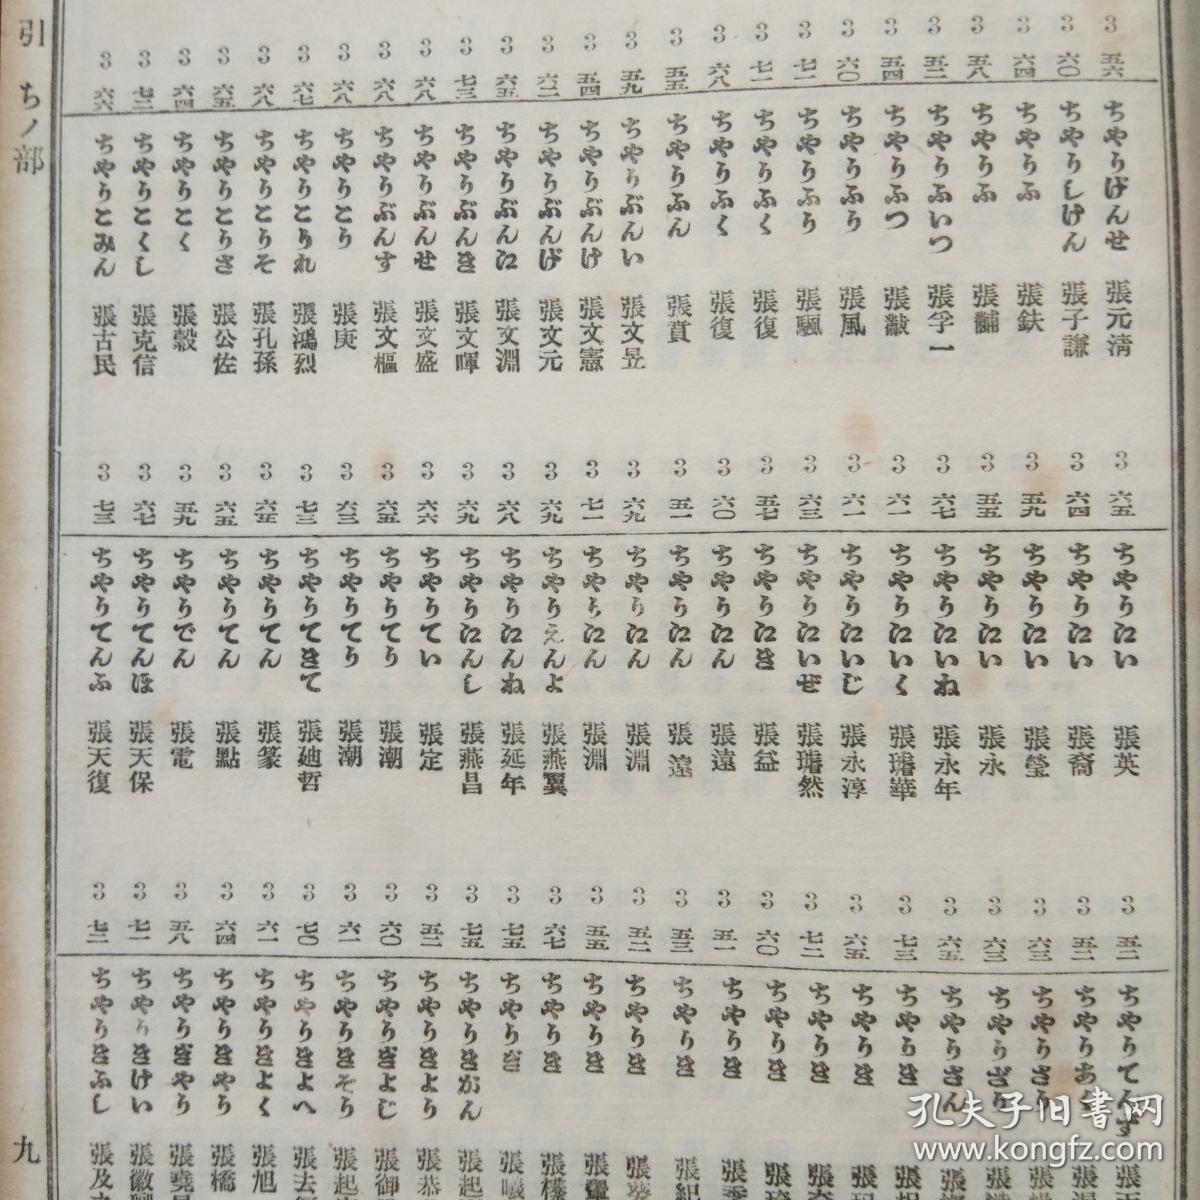 引 ちノ部
3 五六 ちやうげんせ 張元淸
3 六〇 ちやうしけん 張子謙
3 六四 ちやうふ 張鈇
3 五八 ちやうふ 張黼
3 五二 ちやうふいつ 張孚一
3 五四 ちやうふつ 張黻
3 六〇 ちやうふう 張風
3 七二 ちやうふう 張颿
3 七一 ちやうふく 張復
3 六八 ちやうふく 張復
3 五五 ちやうふん 張賁
3 五九 ちやうぶんい 張文昱
3 五四 ちやうぶんけ 張文憲
3 六二 ちやうぶんげ 張文元
3 六五 ちやうぶんえ 張文淵
3 七三 ちやうぶんき 張文暉
3 六八 ちやうぶんせ 張文盛
3 六八 ちやうぶんす 張文樞
3 六八 ちやうこう 張庚
3 六七 ちやうこうれ 張鴻烈
3 六八 ちやうこうそ 張孔孫
3 六五 ちやうこうさ 張公佐
3 六四 ちやうこく 張縠
3 七二 ちやうこくし 張克信
3 六六 ちやうこみん 張古民
3 六五 ちやうえい 張英
3 六四 ちやうえい 張裔
3 五九 ちやうえい 張瑩
3 五五 ちやうえい 張永
3 六七 ちやうえいね 張永年
3 六一 ちやうえいく 張璿華
3 六一 ちやうえいじ 張永淳
3 六三 ちやうえいぜ 張璿然
3 五七 ちやうえき 張益
3 六〇 ちやうえん 張遠
3 五一 ちやうえん 張遠
3 六九 ちやうえん 張淵
3 七一 ちやうえん 張淵
3 六九 ちやうえんよ 張燕翼
3 六八 ちやうえんね 張延年
3 六九 ちやうえんし 張燕昌
3 六六 ちやうてい 張定
3 六五 ちやうてう 張潮
3 六三 ちやうてう 張潮
3 七三 ちやうてきて 張廸哲
3 六五 ちやうてん 張篆
3 六五 ちやうてん 張點
3 五九 ちやうでん 張電
3 六七 ちやうてんほ 張天保
3 七三 ちやうてんふ 張天復
3 五二 ちやうてんず 張
3 五二 ちやうあ 張
3 六三 ちやうさう 張
3 六三 ちやうざう 張
3 六五 ちやうさん 張
3 七三 ちやうき 張
3 六五 ちやうき 張
3 七二 ちやうき 張
3 六〇 ちやうき 張
3 五一 ちやうき 張
3 五三 ちやうき 張紀
3 五二 ちやうき 張
3 五五 ちやうき 張
3 六七 ちやうき 張
3 七五 ちやうぎ 張曦
3 七五 ちやうきがん 張起
3 五二 ちやうきよう 張恭
3 六〇 ちやうぎよじ 張御
3 六一 ちやうきそう 張起
3 七〇 ちやうきよへ 張去
3 六一 ちやうきよく 張旭
3 六四 ちやうきやう 張橋
3 五八 ちやうぎやう 張堯
3 七一 ちやうきけい 張徽
3 七二 ちやうきふし 張及
九
孔夫子旧書网
www.kongfz.com